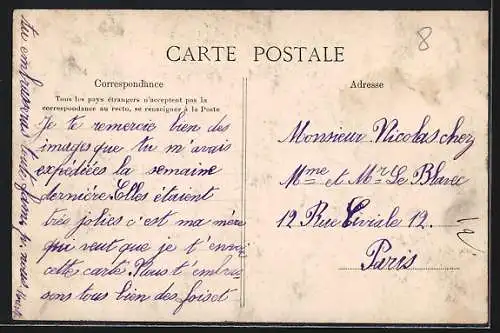 8
CARTE POSTALE
Correspondance
Tous les pays étrangers n'acceptent pas la
correspondance au recto, se renseigner à la Poste
Je te remercie bien des
images que tu m'avais
expédiées la semaine
dernière Elles étaient
très jolies c'est ma mère
qui veut que je t'envoi
cette carte. Nous t'embras
sons tous bien des fois et
tu embrasseras toute
Adresse
Monsieur Nicolas chez
Mme et Mr Le Blavec
12 Rue Civiale 12.
Paris